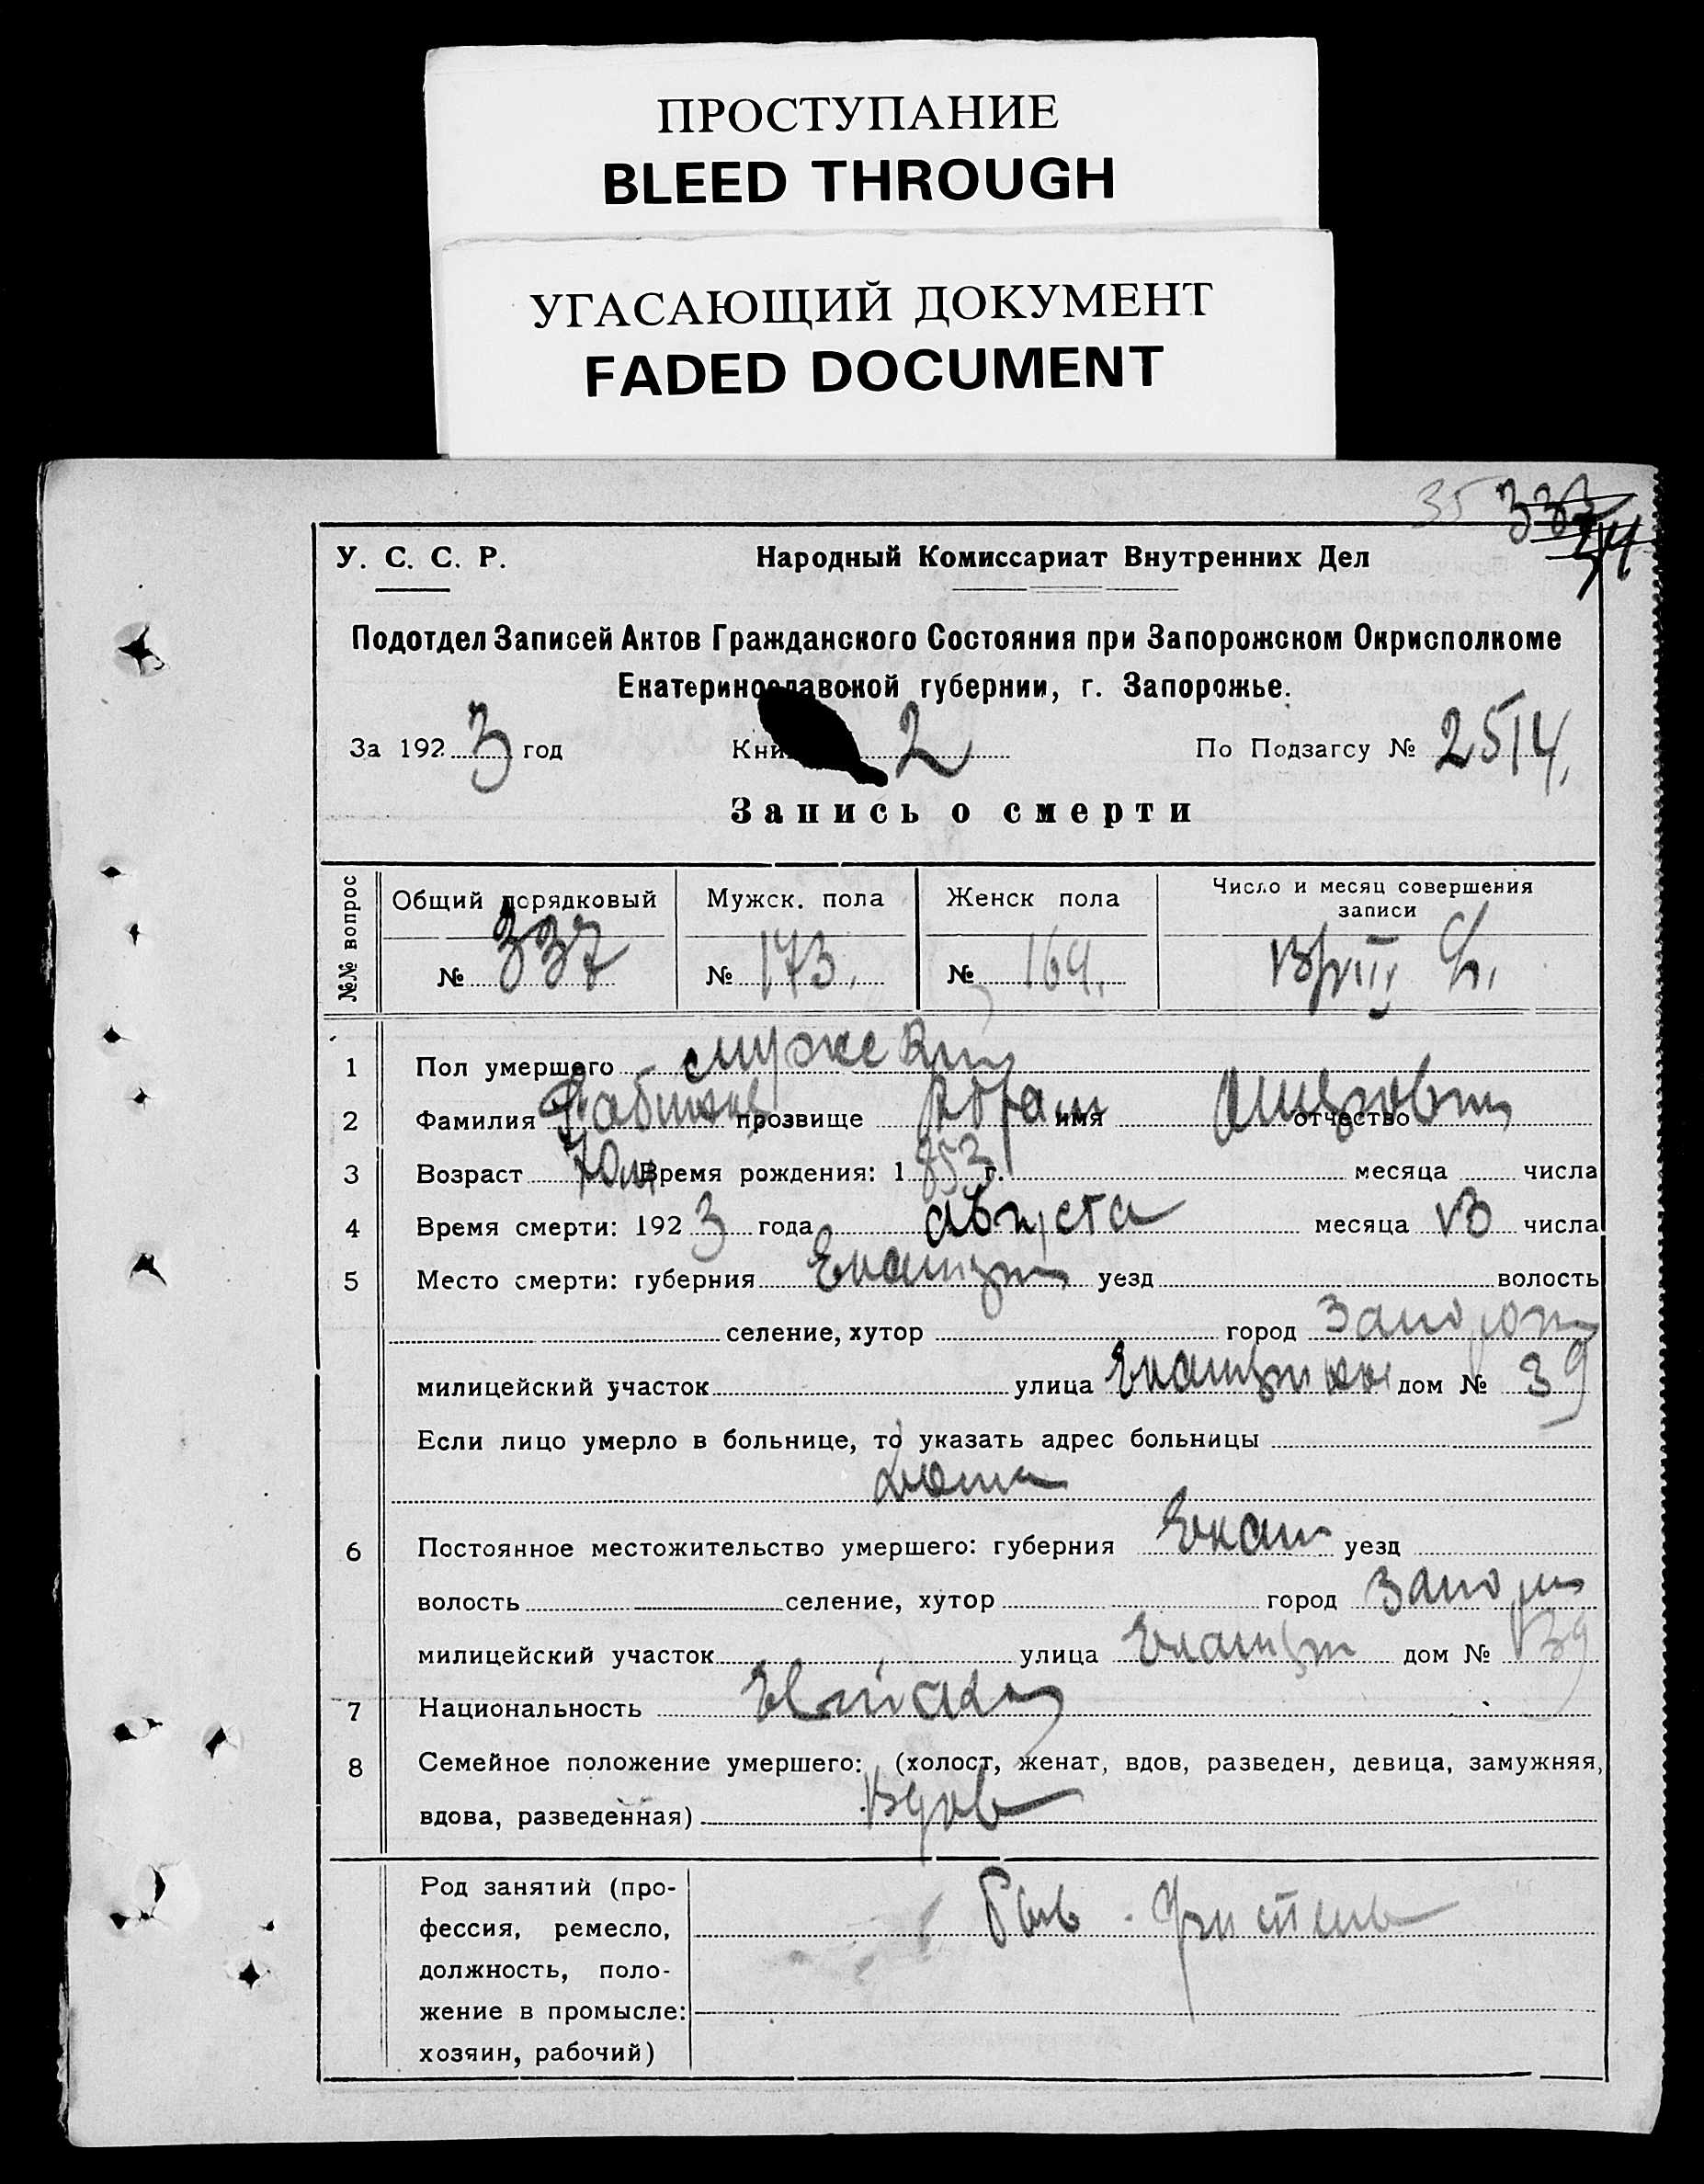 ПРОСТУПАНИЕ
BLEED THROUGH
УГАСАЮЩИЙ ДОКУМЕНТ
FADED DOCUMENT
35 337
У. С. С. Р. Народный Комиссариат Внутренних Дел
Подотдел Записей Актов Гражданского Состояния при Запорожском Окрисполкоме
Екатеринославской губернии, г. Запорожье.
За 1923 год Кни 2 По Подзагсу № 2514
Запись о смерти
№№ вопрос Общий порядковый Мужск. пола Женск пола Число и месяц совершения
записи
№ 337 № 173. № 164.
1 Пол умершего мужской
2 Фамилия прозвище Абрам имя отчество
3 Возраст 70 л Время рождения: 1853 г. месяца числа
4 Время смерти: 1923 года августа месяца 13 числа
5 Место смерти: губерния Екатер уезд волость
селение, хутор город Запорож
милицейский участок улица дом № 39
Если лицо умерло в больнице, то указать адрес больницы
дома
6 Постоянное местожительство умершего: губерния Екат уезд
волость селение, хутор город Запор
милицейский участок улица Екатер дом № 39
7 Национальность
8 Семейное положение умершего: (холост, женат, вдов, разведен, девица, замужняя,
вдова, разведенная) Вдов
Род занятий (про-
фессия, ремесло,
должность, поло-
жение в промысле:
хозяин, рабочий)
быв.